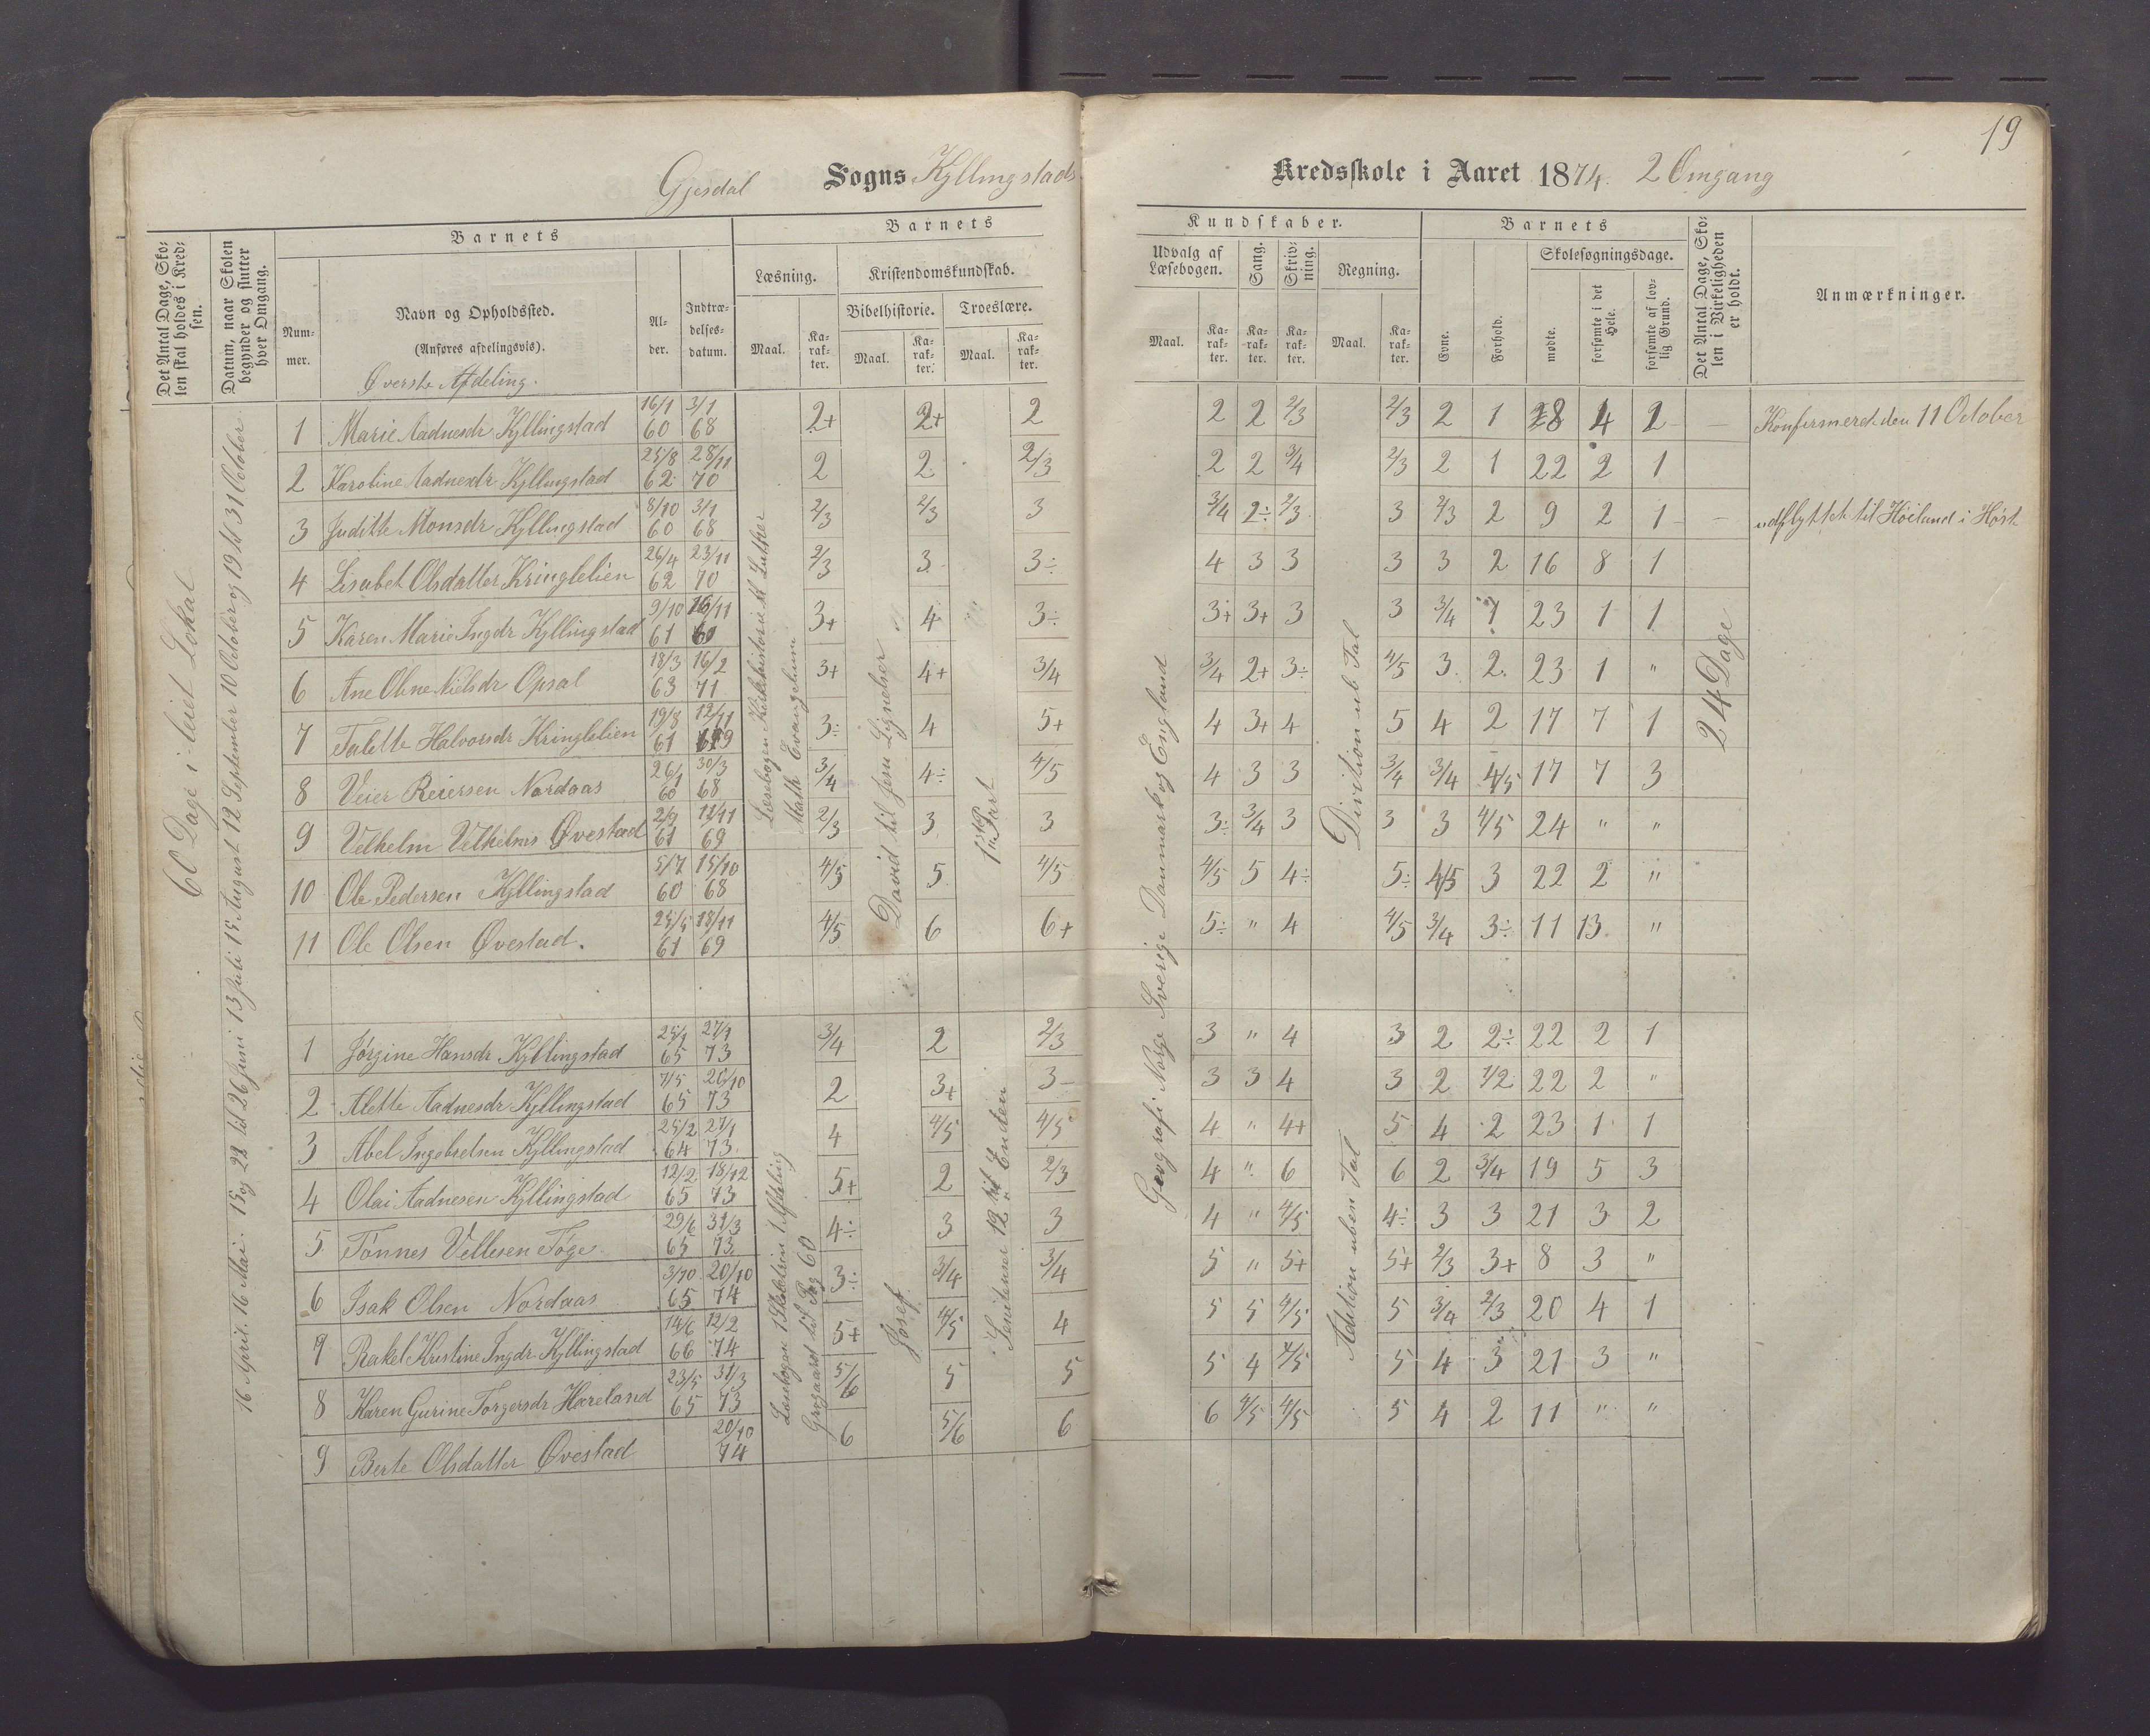 19
Gjesdal Sogns Kyllingstads Kredsskole i Aaret 1874. 2 Omgang
Det Antal Dage, Skolen skal holdes i Kredsen.
Datum, naar Skolen begynder og slutter hver Omgang.
Barnets
Nummer.
Navn og Opholdssted.
(Anføres afdelingsvis).
Øverste Afdeling.
Alder.
Indtrædelsesdatum.
Barnets
Læsning.
Maal.
Karakter.
Kristendomskundskab.
Bibelhistorie.
Maal.
Karakter.
Troeslære.
Maal.
Karakter.
Kundskaber.
Udvalg af Læsebogen.
Maal.
Karakter.
Sang.
Karakter.
Skrivning.
Karakter.
Regning.
Maal.
Karakter.
Barnets
Evne.
Forhold.
Skolesøgningsdage.
mødte.
forsømte i det Hele.
forsømte af lovlig Grund.
Det Antal Dage, Skolen i Virkeligheden er holdt.
Anmærkninger.
60 Dage i leiet Lokal
16 April. 16 Mai. 15 og 22 til 26 Juni 13 Juli 15 August 12 September 10 October og 19 til 31 October
Læsebogen Kirkehistorie til Luther
Math Evangelium
David til Jesu Lignelser
første Part
Geografi Norge Sverige Danmark og England
Division ub Tal
24 Dage
1 Marie Aadnesdr Kyllingstad 16/1 60 3/1 68 2+ 2+ 2 2 2 2/3 2/3 2 1 28 4 2 — Konfirmeret den 11 October
2 Karoline Aadnesdr Kyllingstad 25/8 62 28/11 70 2 2 2/3 2 2 3/4 2/3 2 1 22 2 1
3 Juditte Monsdr Kyllingstad 8/10 60 3/1 68 2/3 2/3 3 3/4 2÷ 2/3 3 2/3 2 9 2 1 — udflyttet til Høiland i Høst
4 Lisabet Olsdatter Kringlelien 26/4 62 23/11 70 2/3 3 3÷ 4 3 3 3 3 2 16 8 1
5 Karen Marie Ingdr Kyllingstad 9/10 61 16/11 60 3+ 4 3÷ 3+ 3+ 3 3 3/4 1 23 1 1
6 Ane Oline Nielsdr Opsal 18/3 63 16/2 71 3+ 4+ 3/4 3/4 2+ 3÷ 4/5 3 2 23 1 "
7 Talette Halvorsdr Kringlelien 19/8 61 12/11 69 3÷ 4 5+ 4 3+ 4 5 4 2 17 7 1
8 Veier Reiersen Nordaas 26/1 60 30/3 68 3/4 4÷ 4/5 4 3 3 3/4 3/4 4/5 17 7 3
9 Velhelm Velhelms Øvestad 2/9 61 12/11 69 2/3 3 3 3÷ 3/4 3 3 3 4/5 24 " "
10 Ole Pedersen Kyllingstad 5/7 60 15/10 68 4/5 5 4/5 4/5 5 4÷ 5÷ 4/5 3 22 2 "
11 Ole Olsen Øvestad. 25/5 61 18/11 69 4/5 6 6+ 5÷ " 4 4/5 3/4 3÷ 11 13 "
Læsebogen 1 Skoletrin 1 Afdeling
Grøgaard til Pag 60
Josef.
Senitense 12 til Enden
Adition uben Tal
1 Jørgine Hansdr Kyllingstad 25/1 65 27/1 73 3/4 2 2/3 3 " 4 3 2 2÷ 22 2 1
2 Alette Aadnesdr Kyllingstad 7/5 65 20/10 73 2 3+ 3– 3 3 4 3 2 1/2 22 2 "
3 Abel Ingebretsen Kyllingstad 25/2 64 27/1 73 4 4/5 4/5 4 " 4+ 5 4 2 23 1 1
4 Olai Aadnesen Kyllingstad 12/2 65 18/12 73 5+ 2 2/3 4 " 6 6 2 3/4 19 5 3
5 Tønnes Vellesen Tøge 29/6 65 31/3 73 4÷ 3 3 4 " 4/5 4÷ 3 3 21 3 2
6 Isak Olsen Nordaas 3/10 65 20/10 74 3÷ 3/4 3/4 5 " 5+ 5+ 2/3 3+ 8 3 "
7 Rakel Kristine Ingdr Kyllingstad 14/6 66 12/2 74 5+ 4/5 4 5 5 4/5 5 3/4 2/3 20 4 1
8 Karen Gurine Torgersdr Høreland 23/5 65 31/3 73 5/6 5 5 5 4 4/5 5 4 3 21 3 "
9 Berte Olsdatter Øvestad 20/10 74 6 5/6 6 6 4/5 4/5 5 4 2 11 " "